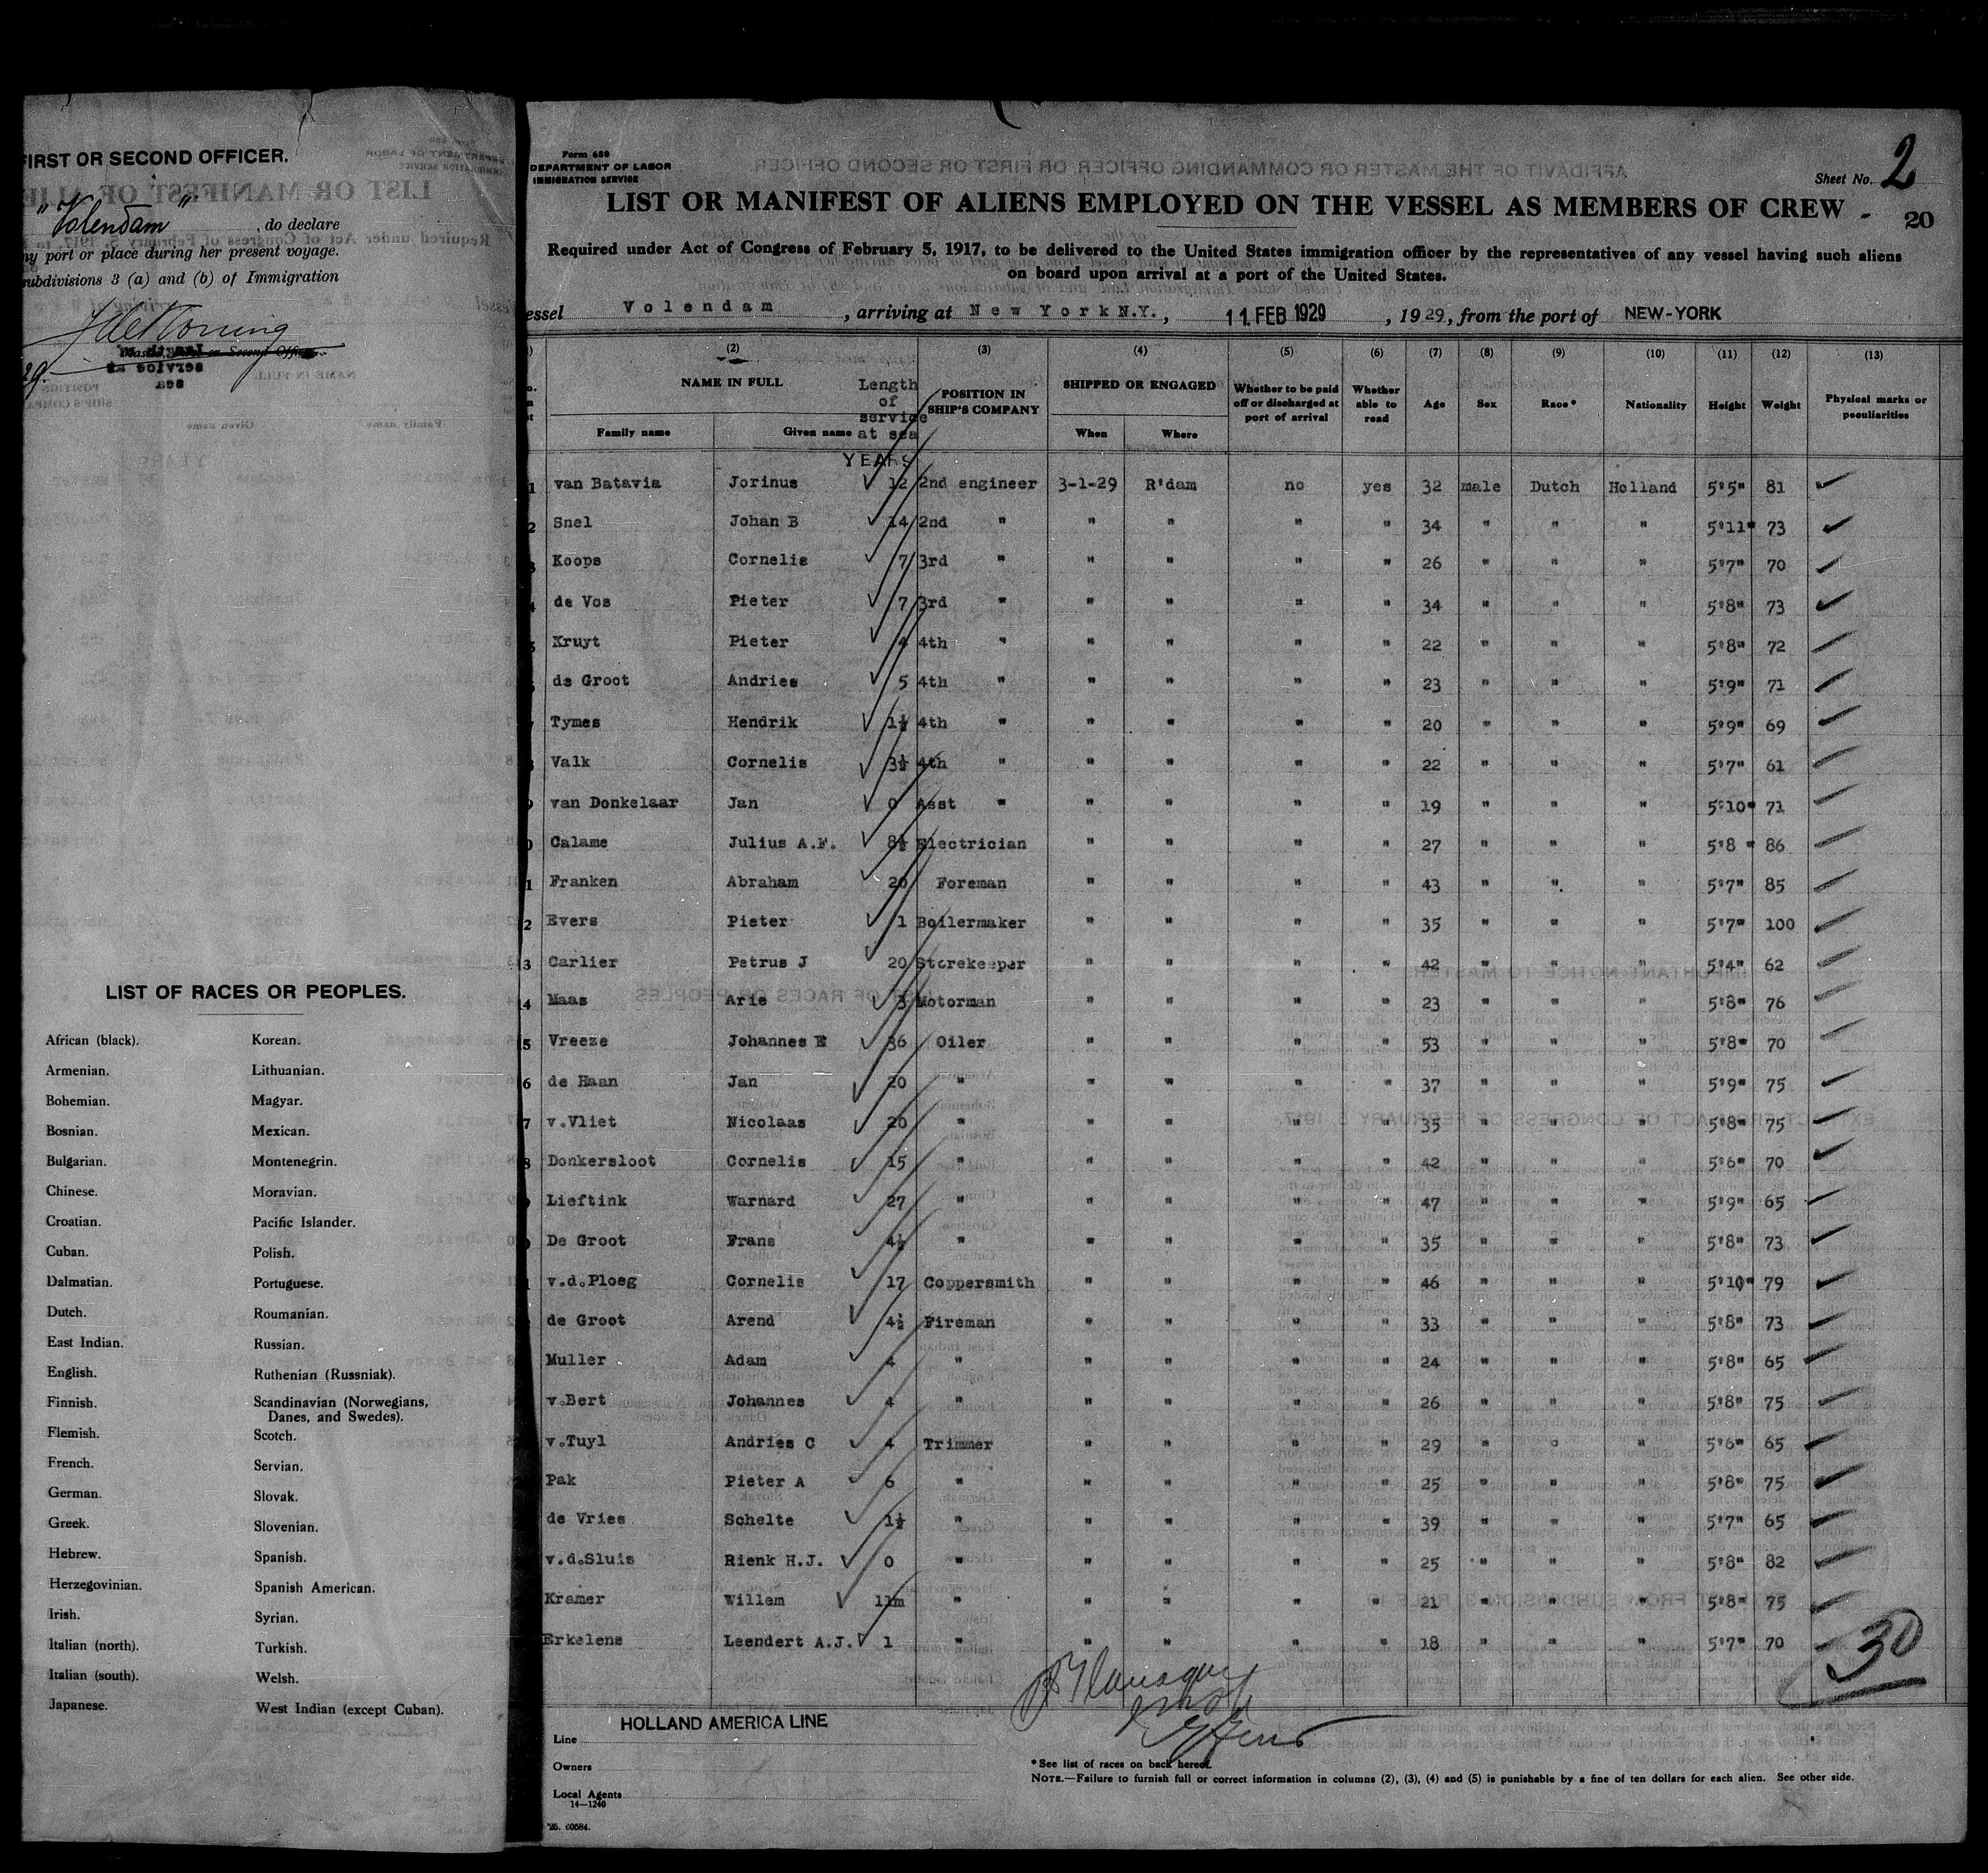 FIRST OR SECOND OFFICER.
" Volendam " , do declare
ny port or place during her present voyage.
ubdivisions 3 (a) and (b) of Immigration
LIST OF RACES OR PEOPLES.
African (black). Korean.
Armenian. Lithuanian.
Bohemian. Magyar.
Bosnian. Mexican.
Bulgarian. Montenegrin.
Chinese. Moravian.
Croatian. Pacific Islander.
Cuban. Polish.
Dalmatian. Portuguese.
Dutch. Roumanian.
East Indian. Russian.
English. Ruthenian (Russniak).
Finnish. Scandinavian (Norwegians,
Danes, and Swedes).
Flemish. Scotch.
French. Servian.
German. Slovak.
Greek. Slovenian.
Hebrew. Spanish.
Herzegovinian. Spanish American.
Irish. Syrian.
Italian (north). Turkish.
Italian (south). Welsh.
Japanese. West Indian (except Cuban).
Form 680
DEPARTMENT OF LABOR
IMMIGRATION SERVICE
Sheet No. 2
LIST OR MANIFEST OF ALIENS EMPLOYED ON THE VESSEL AS MEMBERS OF CREW - 20
Required under Act of Congress of February 5, 1917, to be delivered to the United States immigration officer by the representatives of any vessel having such aliens
on board upon arrival at a port of the United States.
essel Volendam , arriving at New York N.Y., 11 FEB 1929 , 1929, from the port of NEW-YORK
(2) (3) (4) (5) (6) (7) (8) (9) (10) (11) (12) (13)
NAME IN FULL Length of service at sea POSITION IN SHIP'S COMPANY SHIPPED OR ENGAGED Whether to be paid off or discharged at port of arrival Whether able to read Age Sex Race* Nationality Height Weight Physical marks or peculiarities
Family name Given name When Where
YEARS
1 van Batavia Jorinus 12 2nd engineer 3-1-29 R'dam no yes 32 male Dutch Holland 5'5" 81
2 Snel Johan B 14 2nd " " " " " 34 " " " 5'11" 73
Koops Cornelis 7 3rd " " " " " 26 " " " 5'7" 70
de Vos Pieter 7 3rd " " " " " 34 " " " 5'8" 73
Kruyt Pieter 4 4th " " " " " 22 " " " 5'8" 72
de Groot Andries 5 4th " " " " " 23 " " " 5'9" 71
Tymes Hendrik 1½ 4th " " " " " 20 " " " 5'9" 69
Valk Cornelis 3½ 4th " " " " " 22 " " " 5'7" 61
van Donkelaar Jan 0 Asst " " " " " 19 " " " 5'10" 71
Calame Julius A.F. 8½ Electrician " " " " 27 " " " 5'8 " 86
1 Franken Abraham 20 Foreman " " " " 43 " " " 5'7" 85
2 Evers Pieter 1 Boilermaker " " " " 35 " " " 5'7" 100
3 Carlier Petrus J 20 Storekeeper " " " " 42 " " " 5'4" 62
14 Maas Arie 3 Motorman " " " " 23 " " " 5'8" 76
5 Vreeze Johannes E 36 Oiler " " " " 53 " " " 5'8" 70
6 de Haan Jan 20 " " " " " 37 " " " 5'9" 75
7 v.Vliet Nicolaas 20 " " " " " 35 " " " 5'8" 75
8 Donkersloot Cornelis 15 " " " " " 42 " " " 5'6" 70
Lieftink Warnard 27 " " " " " 47 " " " 5'9" 65
De Groot Frans 4½ " " " " " 35 " " " 5'8" 73
v.d.Ploeg Cornelis 17 Coppersmith " " " " 46 " " " 5'10" 79
de Groot Arend 4½ Fireman " " " " 33 " " " 5'8" 73
Muller Adam 4 " " " " " 24 " " " 5'8" 65
v.Bert Johannes 4 " " " " " 26 " " " 5'8" 75
v.Tuyl Andries C 4 Trimmer " " " " 29 " " " 5'6" 65
Pak Pieter A 6 " " " " " 25 " " " 5'8" 75
de Vries Schelte 1½ " " " " " 39 " " " 5'7" 65
v.d.Sluis Rienk H.J. 0 " " " " " 25 " " " 5'8" 82
Kramer Willem 11m " " " " " 21 " " " 5'8" 75
Erkelens Leendert A.J. 1 " " " " " 18 " " " 5'7" 70
30
Line HOLLAND AMERICA LINE
Owners
Local Agents
14—1240
'25. 60584.
*See list of races on back hereof.
NOTE.—Failure to furnish full or correct information in columns (2), (3), (4) and (5) is punishable by a fine of ten dollars for each alien. See other side.